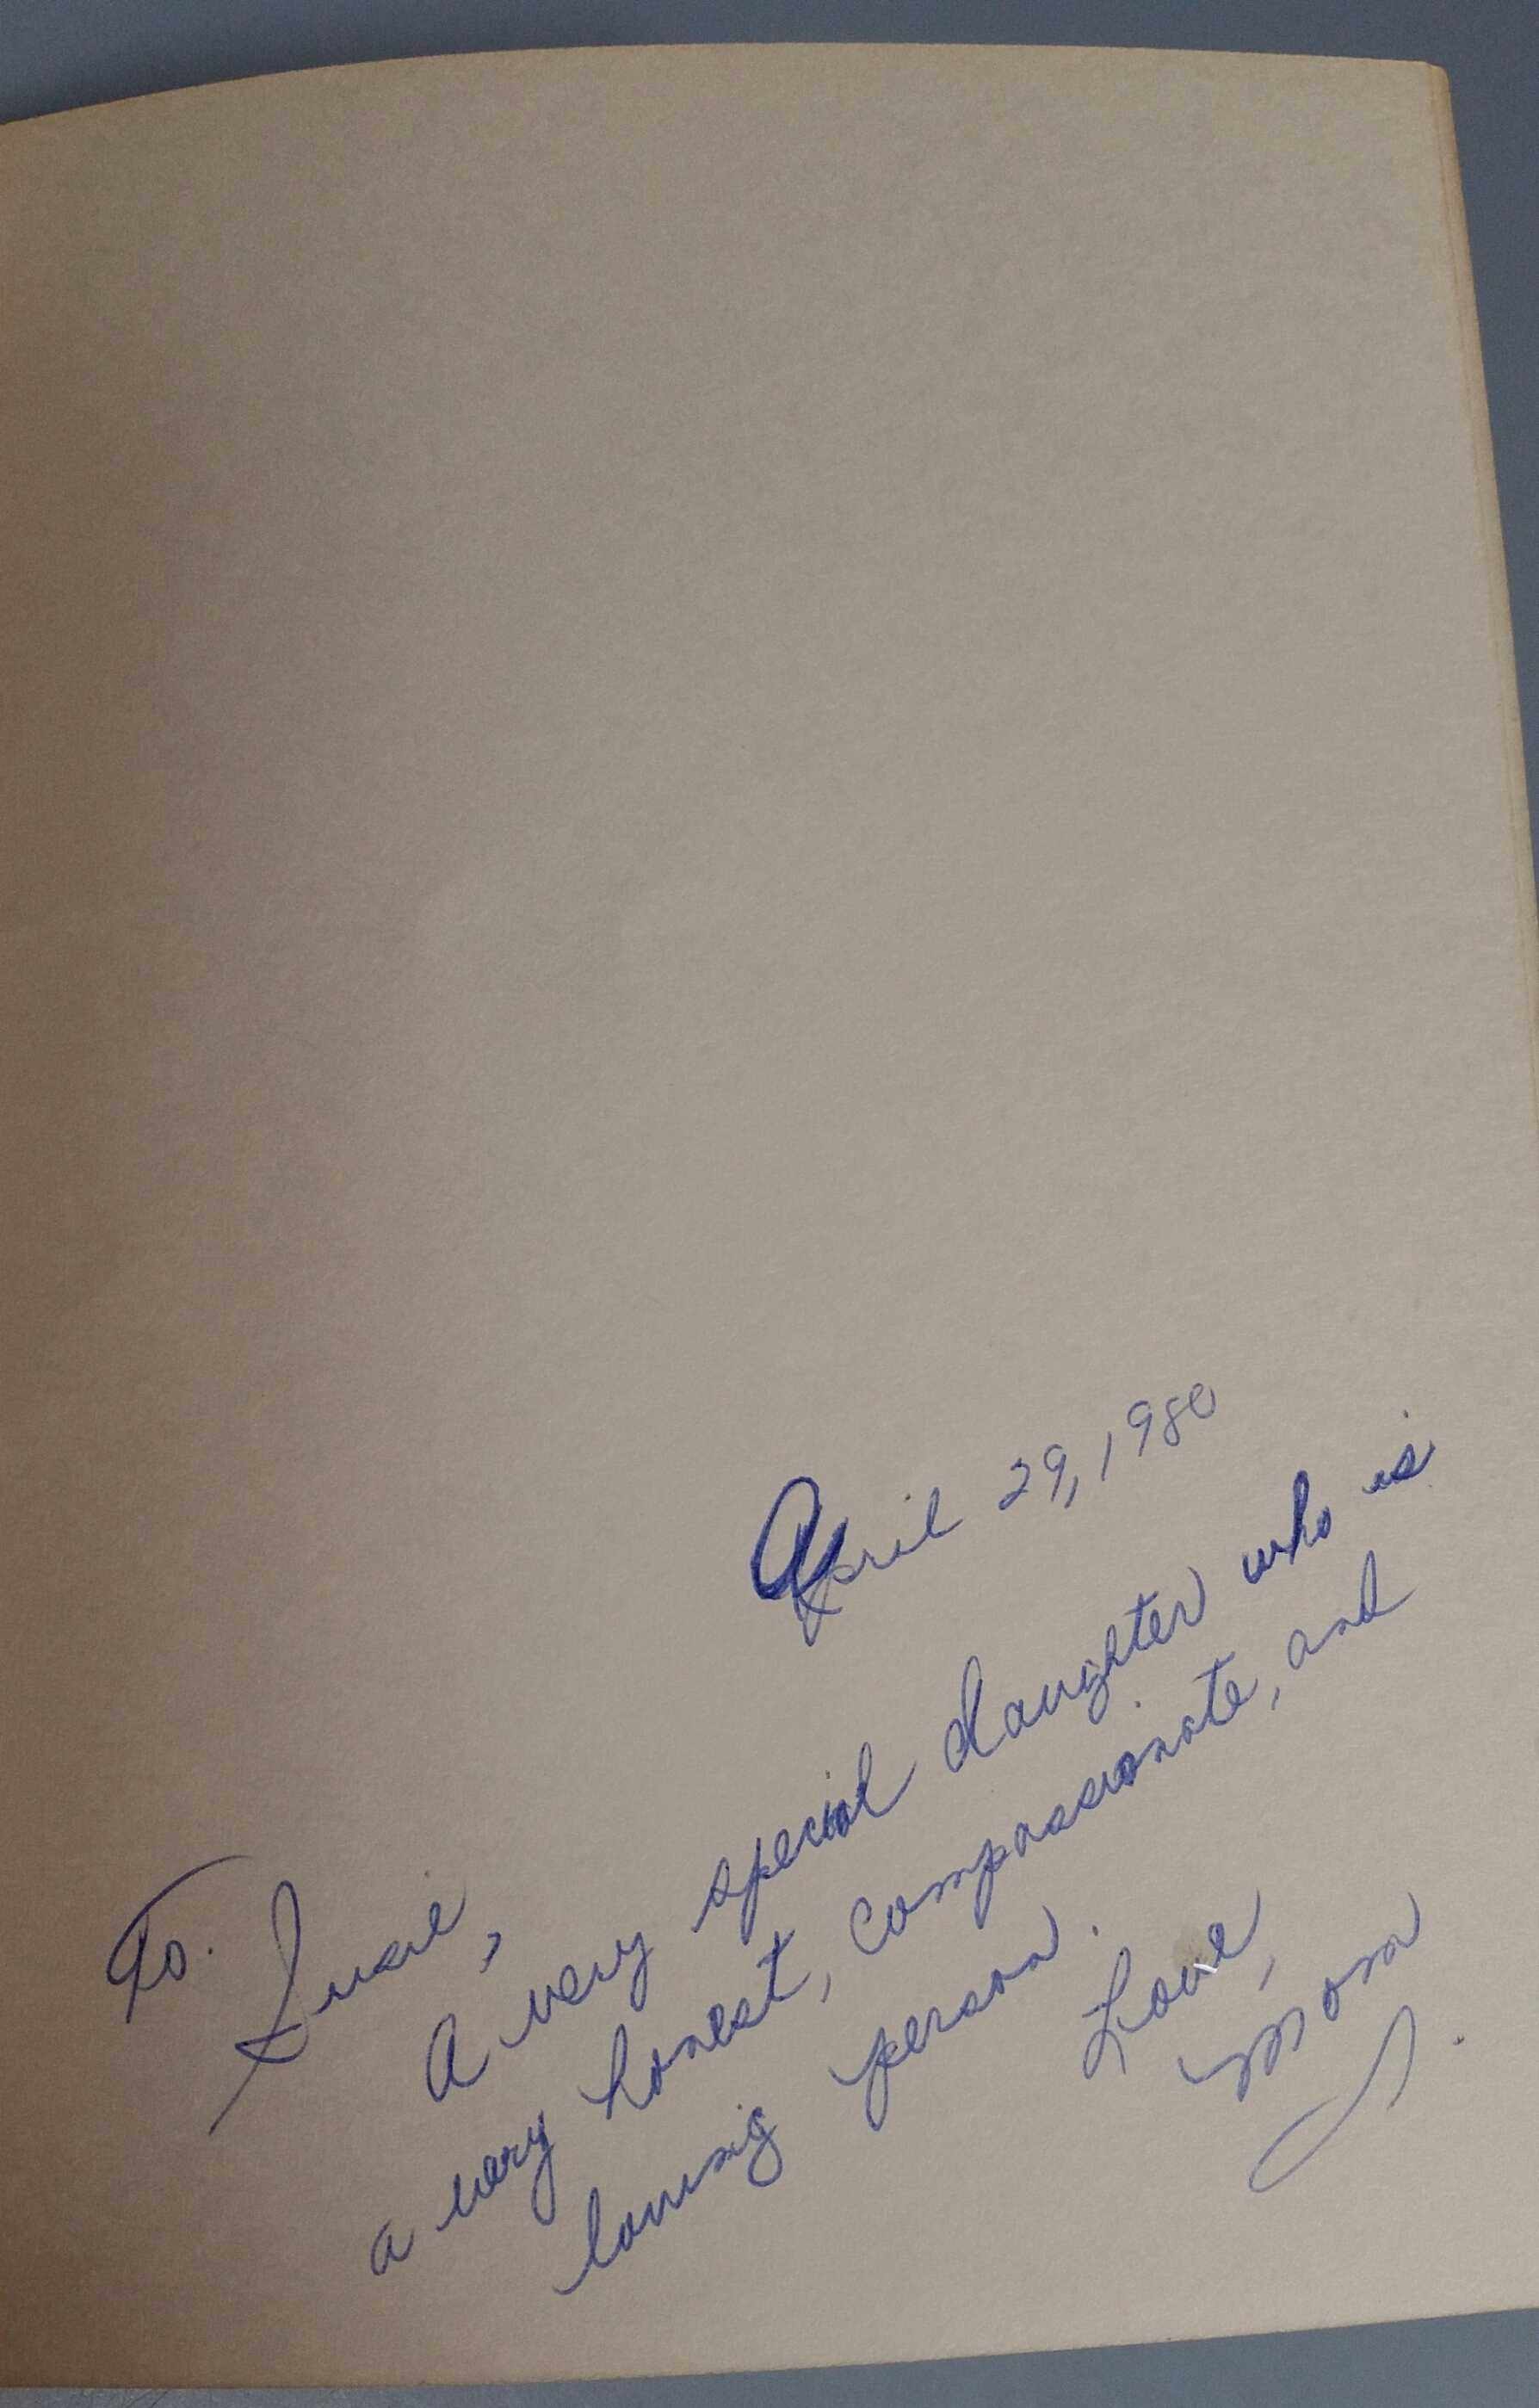 April 29, 1980
To. Susie,
A very special daughter who is
a very honest, compassionate, and
loving person.
Love,
Mom